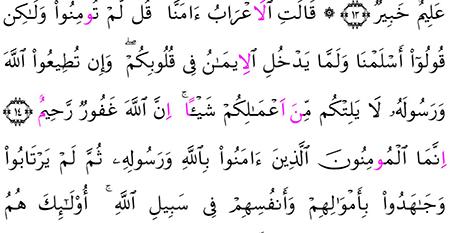 عَلِيمٌ خَبِيرٌ ۝١٣ ۞ قَالَتِ ٱلَاعْرَابُ ءَامَنَّا قُل لَّمْ تُومِنُوا۟ وَلَـٰكِن
قُولُوٓا۟ أَسْلَمْنَا وَلَمَّا يَدْخُلِ ٱلِايمَـٰنُ فِى قُلُوبِكُمْ ۖ وَإِن تُطِيعُوا۟ ٱللَّهَ
وَرَسُولَهُۥ لَا يَلِتْكُم مِّنَ اَعْمَـٰلِكُمْ شَيْـًٔا ۚ اِنَّ ٱللَّهَ غَفُورٌ رَّحِيمٌ ۝١٤
اِنَّمَا ٱلْمُومِنُونَ ٱلَّذِينَ ءَامَنُوا۟ بِٱللَّهِ وَرَسُولِهِۦ ثُمَّ لَمْ يَرْتَابُوا۟
وَجَـٰهَدُوا۟ بِأَمْوَٰلِهِمْ وَأَنفُسِهِمْ فِى سَبِيلِ ٱللَّهِ ۚ أُو۟لَـٰٓئِكَ هُمُ